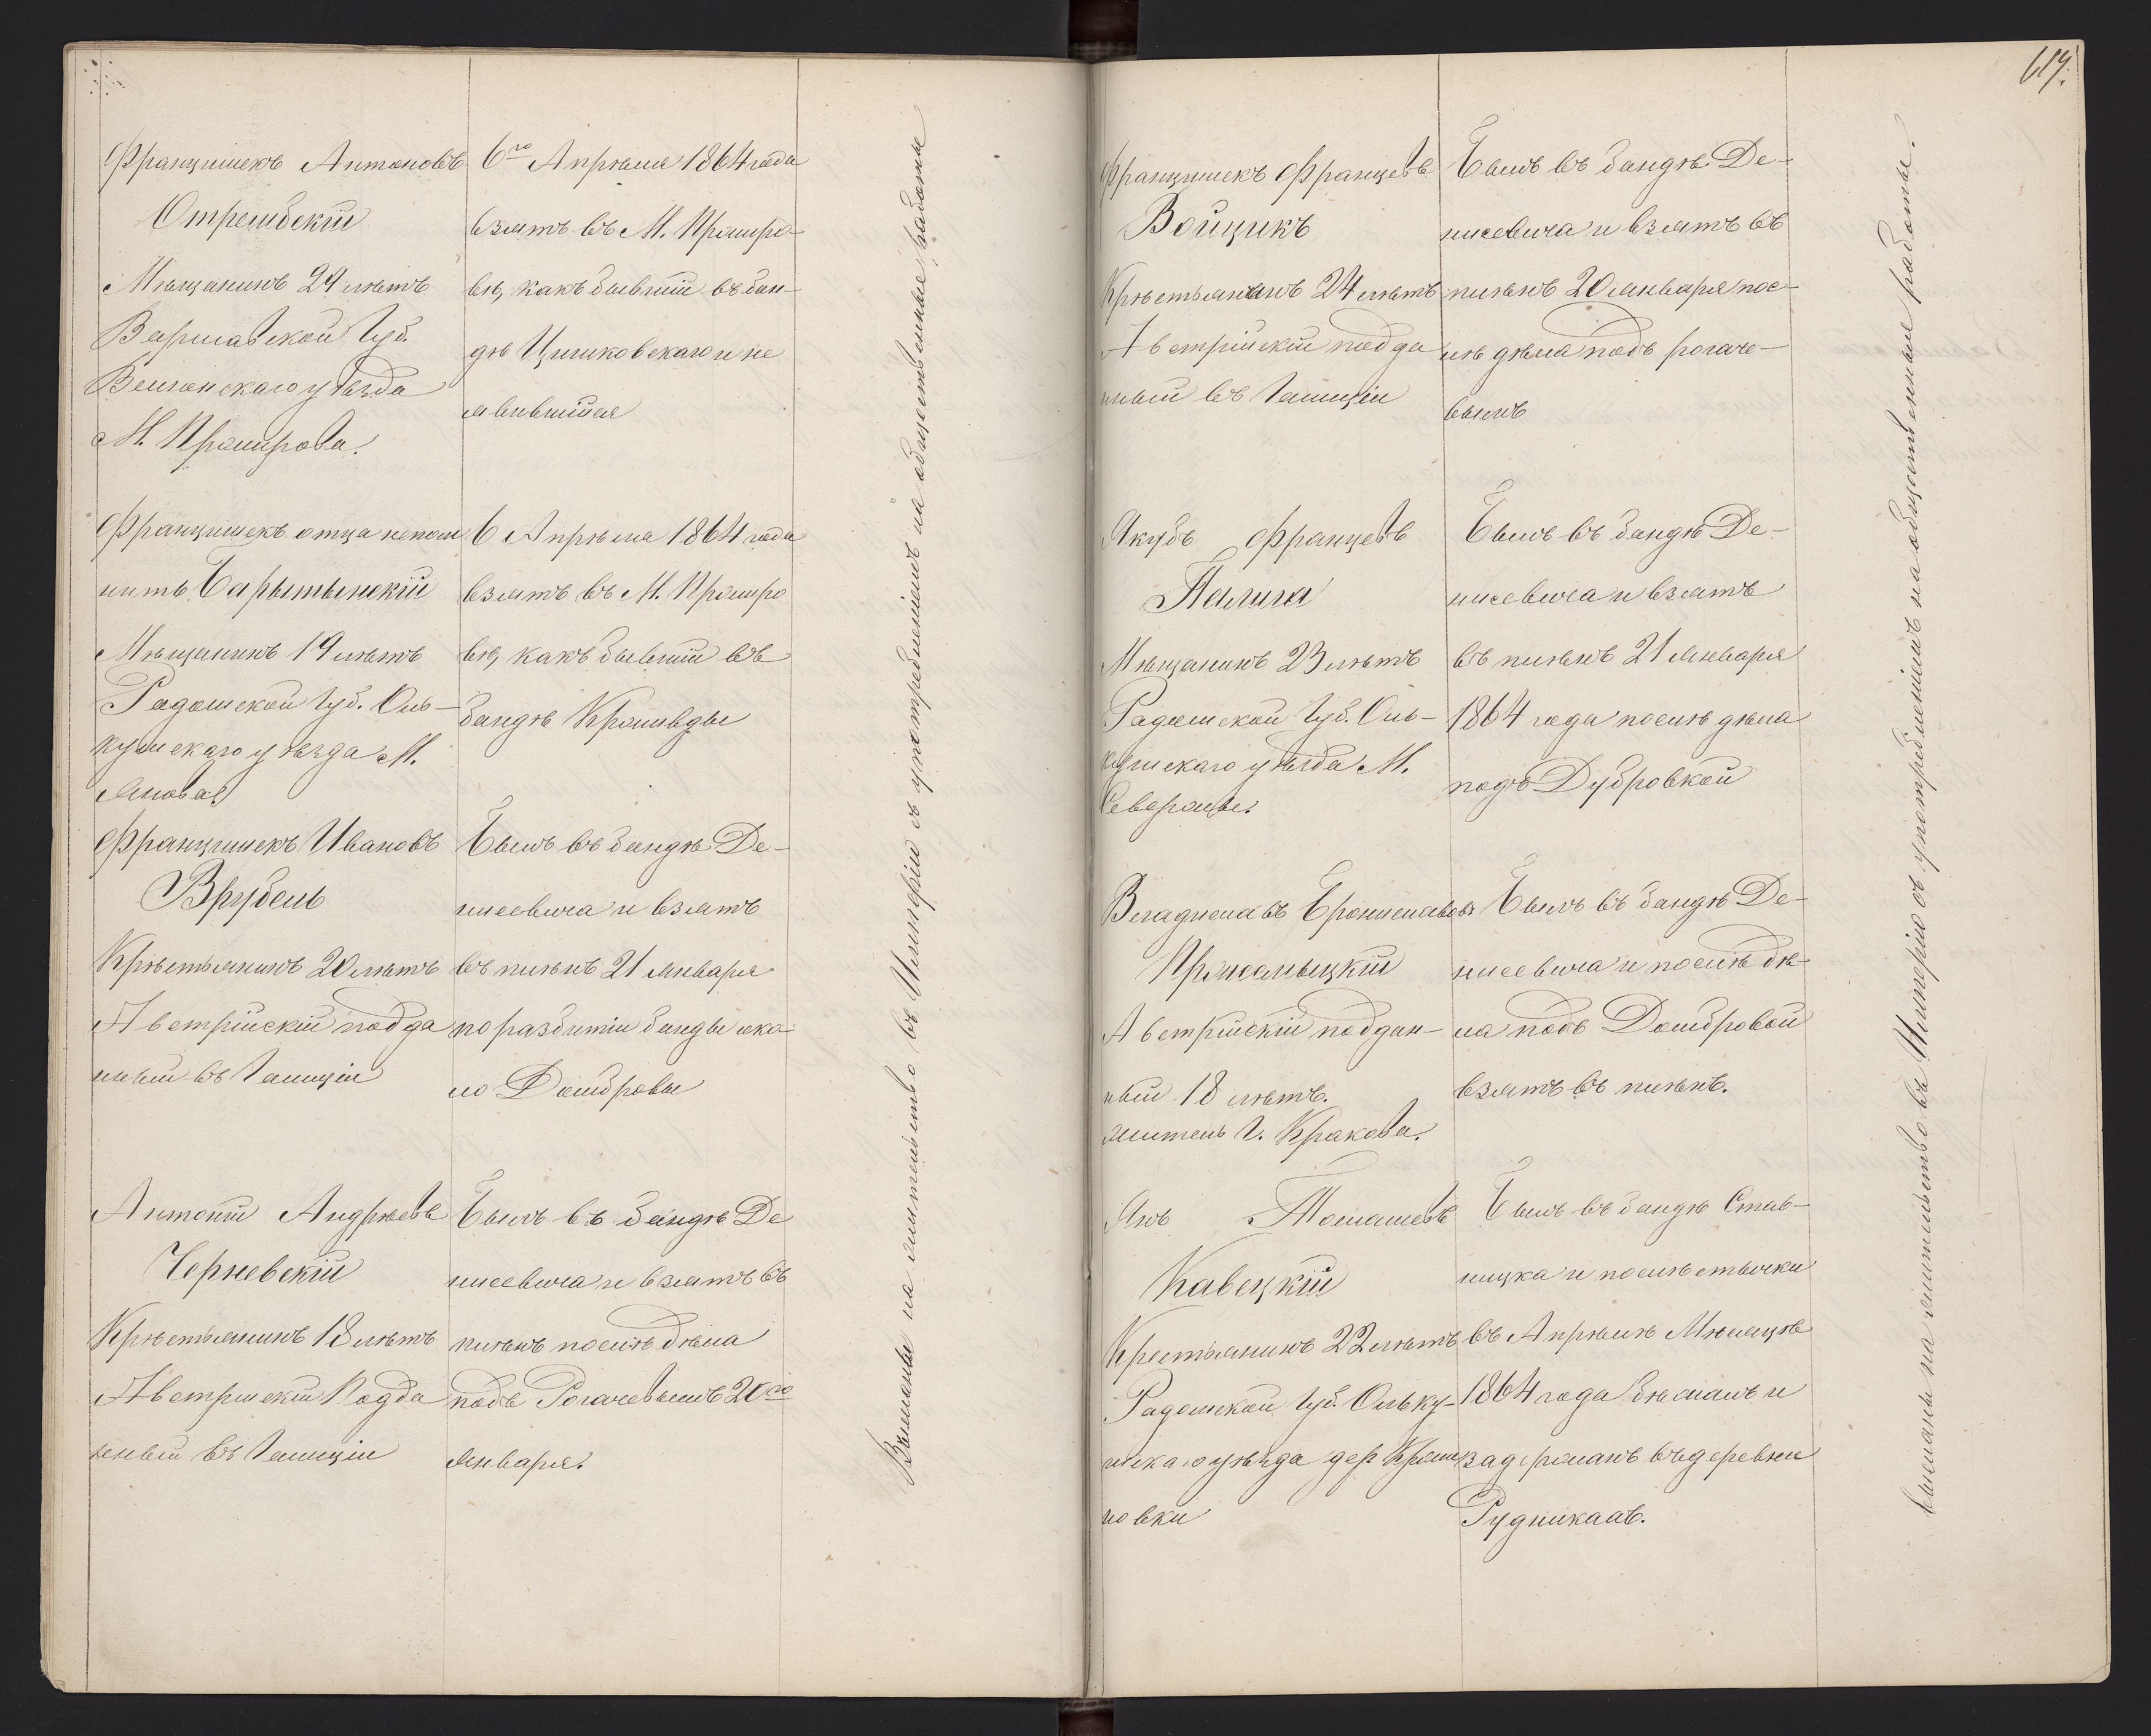 Францишекъ Антоновъ
Отрембскій
Мѣщанинъ 29 лѣтъ
Варшавской Губ.
Велюнскаго уѣзда
М. Промирова.
6го Апрѣля 1864 года
взятъ въ М. Промиро-
вѣ, какъ бывшій въ бан-
дѣ Циликовскаго и не
явившійся
Францишекъ отца непом
нитъ Барытынскій
Мѣщанинъ 19 лѣтъ
Радомской Губ. Оль-
кушскаго уѣзда М.
Янова.
6 Апрѣля 1864 года
взятъ въ М. Промиро
вѣ, какъ бывшій въ
бандѣ Кромвды
Францишекъ Ивановъ
Врубель
Крѣстьянинъ 20 лѣтъ
Австрійскій подда
нный въ Галиціи
Былъ въ бандѣ Де-
нисевича и взятъ
въ плѣнъ 21 Января
по разбитіи банды око-
ло Домбровы
Антоній Андрѣевъ
Черневскій
Крѣстьянинъ 18 лѣтъ
Австрійскій Подда
нный въ Галиціи
Былъ въ бандѣ Де
нисевича и взятъ въ
плѣнъ послѣ дѣла
подъ Рогачевымъ 20го
Января.
Высланы на жительство въ Имперію съ употребленіемъ на общественные работы
619.
Францишекъ Францевъ
Войцикъ
Крѣстьянинъ 24 лѣтъ
Австрійскій подда
нный въ Галиціи
Былъ въ бандѣ Де-
нисевича и взятъ въ
плѣнъ 20 Января пос-
лѣ дѣла подъ Рогаче-
вымъ
Якубъ Францевъ
Палига
Мѣщанинъ 23 лѣтъ
Радомской Губ. Оль-
кушскаго уѣзда М.
Севержа.
Былъ въ бандѣ Де-
нисевича и взятъ
въ плѣнъ 21 Января
1864 года послѣ дѣла
подъ Дубровкой
Владиславъ Брониславовъ
Промалыцкій
Австрійскій поддан-
ный 18 лѣтъ.
житель Г. Кракова.
Былъ въ бандѣ Де-
нисевича и послѣ дѣ-
ла подъ Домбровой
взятъ въ плѣнъ.
Янъ Томашевъ
Кавецкій
Крестьянинъ 22 лѣтъ
Радомской Губ. Ольку-
шскаго уѣзда дер. Кроми
ловки
Былъ въ бандѣ Став-
ницка и послѣ стычки
въ Апрѣлѣ Мѣсяцѣ
1864 года бѣжалъ и
задержанъ въ деревни
Рудникахъ.
Высланы на жительство въ Имперію съ употребленіемъ на общественные работы.